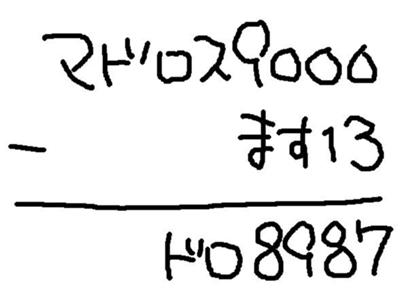 マドロス9000
− ます13
ドロ8987